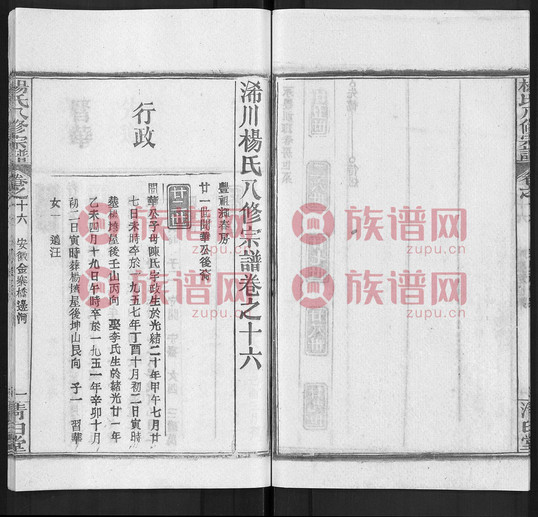 浠川楊氏八修宗譜卷之十六
豐祖
廿一世開華公後裔
廿二世
行政
開華公子母陳氏字政生於光緒二十年甲午七月廿
七日未時卒於一九五七年丁酉十月初二日寅時
葬楊壪屋後壬山丙向 娶李氏生於緒光廿一年
乙未四月十九日午時卒於一九五一年辛卯十月
初二日寅時葬楊壪屋後坤山艮向 子一 習華
女一 適汪
楊氏八修宗譜 卷之十六 安徽金寨 一 清白堂
楊氏八修宗譜 卷之 清白堂
族谱网
www.zupu.cn
族谱网
www.zupu.cn
族谱网
www.zupu.cn
族谱网
www.zupu.cn